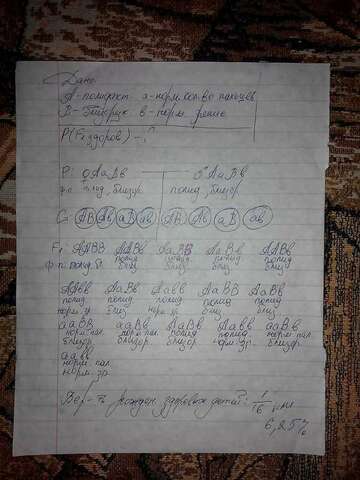 Дано
А - полидакт. а - норм. кол-во пальцев
В - близорук в - норм. зрение
P(F₁ здоров) - ?
P: ♀ АаВв ♂ АаВв
ф: полид, близор. полид, близор
G: АВ Ав аВ ав АВ Ав аВ ав
F₁: ААВВ ААВв АаВВ АаВв ААВв
полид полид полид полид
близ близ близ близ
ААвв АаВв Аавв АаВВ АаВв
полид полид полид полид полид
норм. зр. близ норм. зр. близ близ
ааВВ ааВв АаВв Аавв ааВв
норм. пал. норм. пал. полид полид норм. пал.
близор. близор. близор норм. зр. близор.
аавв
норм. пал.
норм. зр.
Вер-ть рожден. здоровых детей: 1/16 или
6,25%